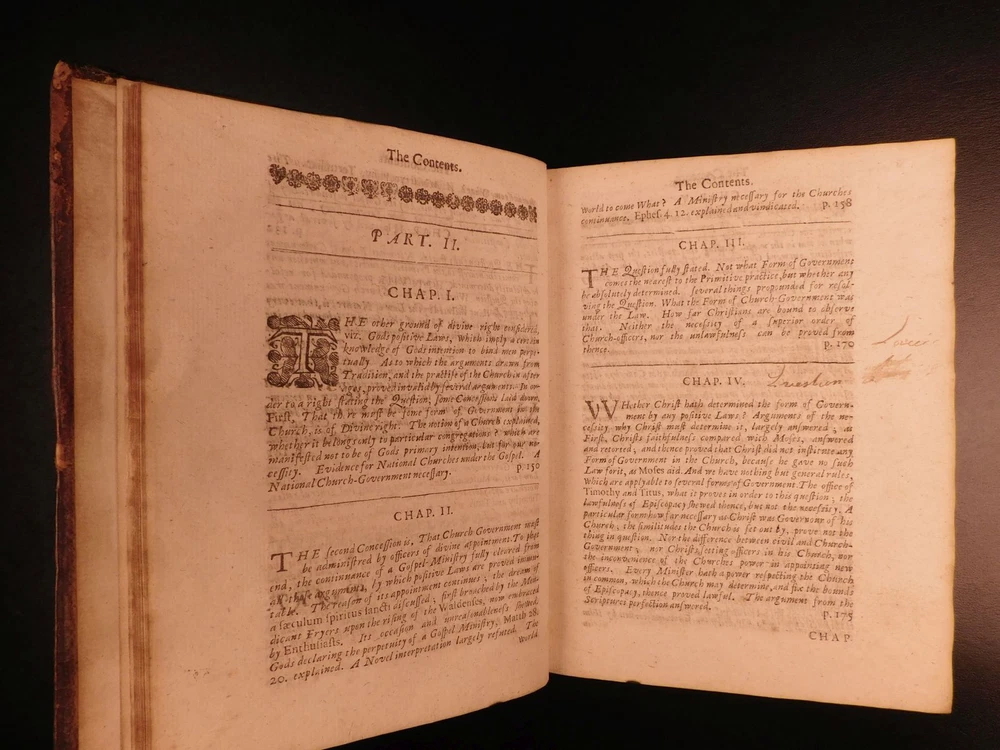 The Contents.
PART. II.
CHAP. I.
THE other ground of divine right considered,
viz. Gods positive Laws, which imply a certain
knowledge of Gods intention to bind men perpe-
tually. As to which the arguments drawn from
Tradition, and the practise of the Church in after
ages, proved invalid by several arguments. In or-
der to a right stating the Question, some Concessions laid down.
First, That there must be some form of Government in the
Church, is of Divine right. The notion of a Church explained,
whether it belongs only to particular congregations? which are
manifested not to be of Gods primary intention, but for our ne-
cessity. Evidence for National Churches under the Gospel. A
National Church-Government necessary. p. 150
CHAP. II.
THE second Concession is, That Church Government must
be administred by officers of divine appointment. To that
end, the continuance of a Gospel-Ministry fully cleared from
all those arguments, by which positive Laws are proved immu-
table. The reason of its appointment continues; the dream of
a sæculum spiritus sancti discussed; first broached by the Men-
dicant Fryers upon the rising of the Waldenses, now embraced
by Enthusiasts. Its occasion and unreasonableness shewed.
Gods declaring the perpetuity of a Gospel Ministry, Matth 28.
20. explained. A Novel interpretation largely refuted. The
World
The Contents.
world to come What? A Ministry necessary for the Churches
continuance. Ephes. 4. 12. explained and vindicated. p. 158
CHAP. III.
THE Question fully stated. Not what Form of Government
comes the nearest to the Primitive practice, but whether any
be absolutely determined. Several things propounded for resol-
ving the Question. What the Form of Church-Government was
under the Law. How far Christians are bound to observe
that. Neither the necessity of a superior order of
Church-officers, nor the unlawfulness can be proved from
thence. p. 170
CHAP. IV. Question
WHether Christ hath determined the form of Govern-
ment by any positive Laws? Arguments of the ne-
cessity why Christ must determine it, largely answered; as
First, Christs faithfulness compared with Moses, answered
and retorted, and thence proved that Christ did not institute any
Form of Government in the Church, because he gave no such
Law for it, as Moses did. And we have nothing but general rules,
which are applyable to several forms of Government. The office of
Timothy and Titus, what it proves in order to this question; the
lawfulness of Episcopacy shewed thence, but not the necessity. A
particular form how far necessary as Christ was Governour of his
Church; the similitudes the Church is set out by, prove not the
thing in question. Nor the difference between civil and Church-
Government; nor Christs setting officers in his Church, nor
the inconvenience of the Churches power in appointing new
officers. Every Minister hath a power respecting the Church
in common, which the Church may determine, and fix the bounds
of Episcopacy, thence proved lawful. The argument from the
Scriptures perfection answered. p. 175
CHAP.